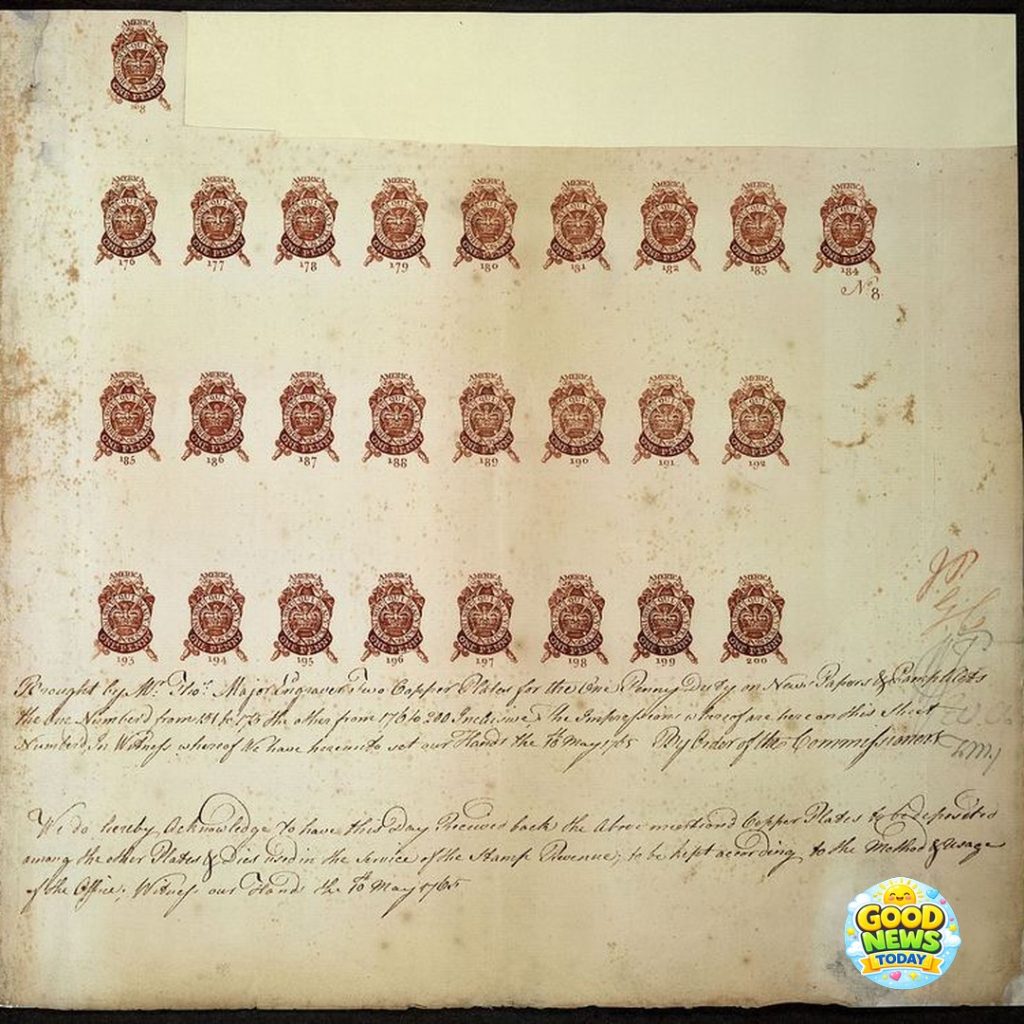 AMERICA
ONE PENNY
No 8
AMERICA AMERICA AMERICA AMERICA AMERICA AMERICA AMERICA AMERICA AMERICA
ONE PENNY ONE PENNY ONE PENNY ONE PENNY ONE PENNY ONE PENNY ONE PENNY ONE PENNY ONE PENNY
176 177 178 179 180 181 182 183 184
No. 8
AMERICA AMERICA AMERICA AMERICA AMERICA AMERICA AMERICA AMERICA
ONE PENNY ONE PENNY ONE PENNY ONE PENNY ONE PENNY ONE PENNY ONE PENNY ONE PENNY
185 186 187 188 189 190 191 192
AMERICA AMERICA AMERICA AMERICA AMERICA AMERICA AMERICA AMERICA
ONE PENNY ONE PENNY ONE PENNY ONE PENNY ONE PENNY ONE PENNY ONE PENNY ONE PENNY
193 194 195 196 197 198 199 200
Brought by Mr. Thos. Major Engraver Two Copper Plates for the One Penny Duty on News Papers & Pamphlets
the one Numberd from 151 to 175 the other from 176 to 200 Inclusive, the Impressions whereof are here on this Sheet
Numberd, In Witness whereof We have hereunto set our Hands the May 1765 By Order of the Commissioners
We do hereby Acknowledge to have this Day Received back the Above mentiond Copper Plates to be deposited
among the other Plates & Dies used in the Service of the Stamp Revenue, to be kept according to the Method & Usage
of the Office; Witness our Hands the May 1765
GOOD
NEWS
TODAY